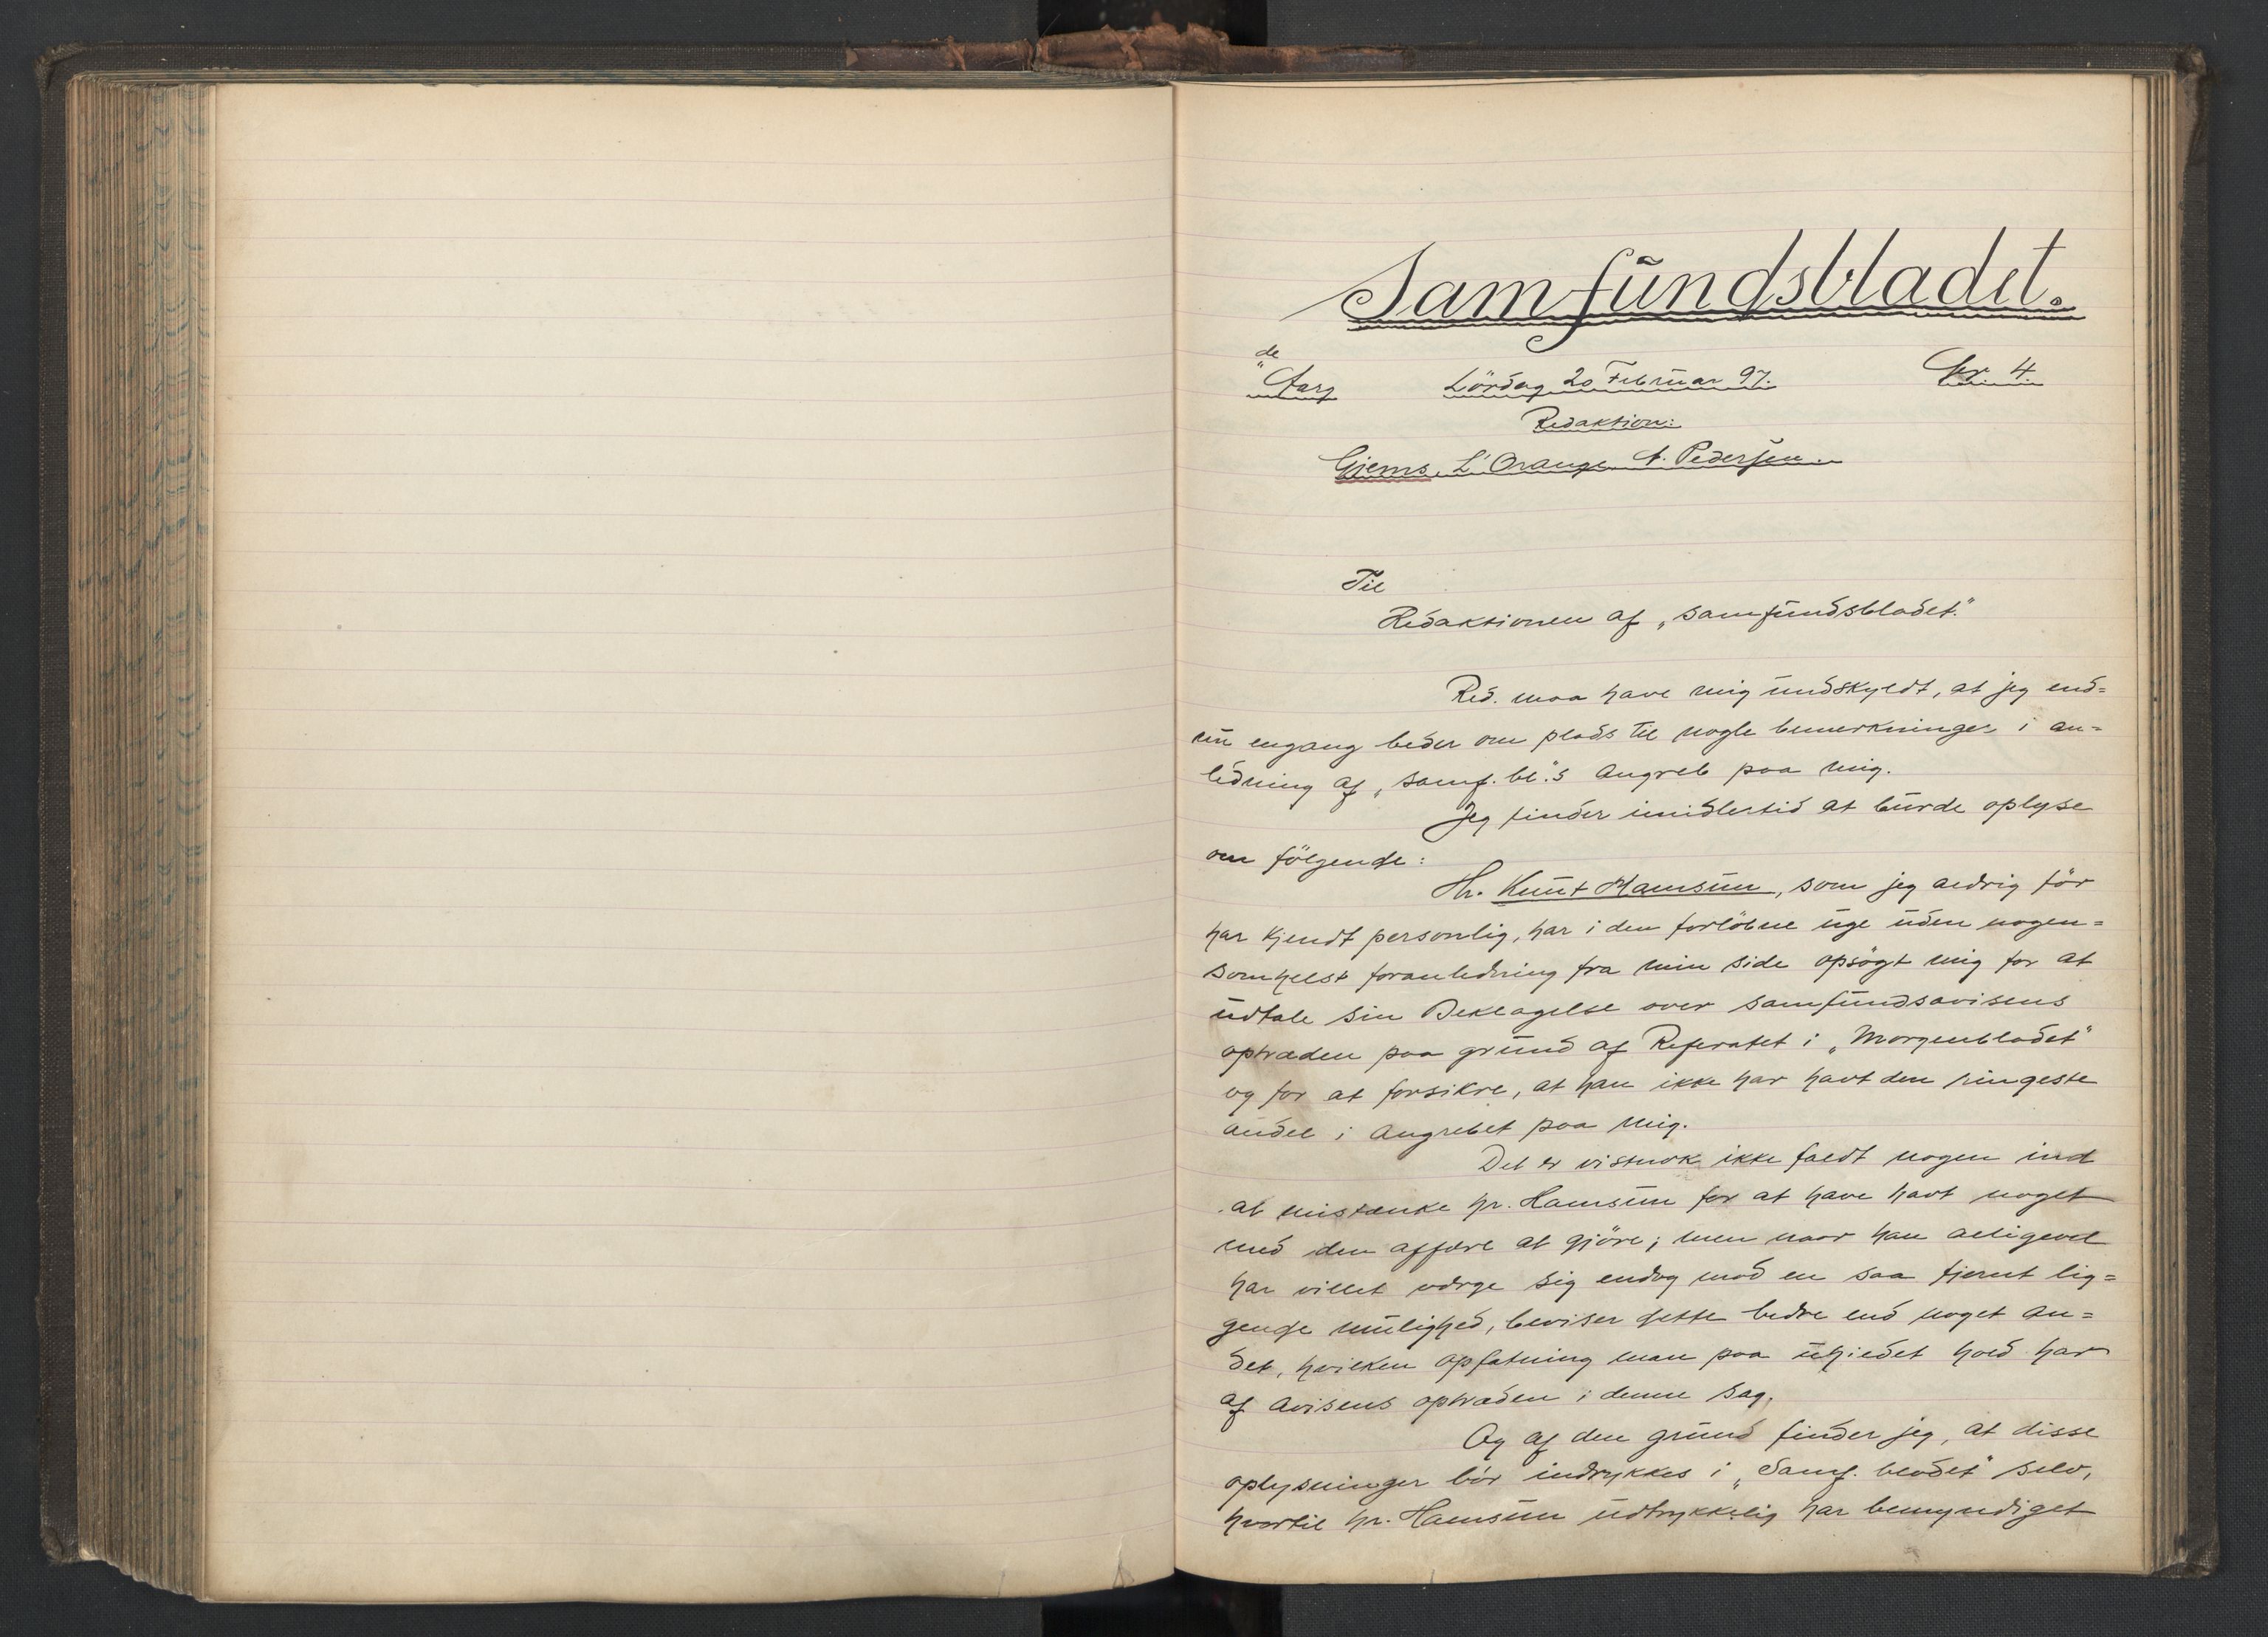 Samfundsbladet.
de
" Aarg Lørdag 20 Februar 97. Nr. 4.
Redaktion:
Gjems, L'Orange, A. Pedersen.
Til
Redaktionen af „Samfundsbladet."
Red. maa have mig undskyldt, at jeg end=
nu engang beder om plads til nogle bemerkninger i an=
ledning af „Samf. bl."s Angreb paa mig.
Jeg finder imidlertid at burde oplyse
om følgende:
Hr. Knut Hamsun, som jeg aldrig før
har kjendt personlig, har i den forløbne uge uden nogen=
somhelst foranledning fra min side opsøgt mig for at
udtale sin Beklagelse over samfundsavisens
optræden paa grund af Referatet i „Morgenbladet"
og for at forsikre, at han ikke har havt den ringeste
andel i Angrebet paa mig.
Det er vistnok ikke faldt nogen ind
at mistænke hr. Hamsun for at have havt noget
med den affære at gjøre; men naar han alligevel
har villet værge sig endog mod en saa fjernt lig=
gende mulighed, beviser dette bedre end noget an=
det, hvilken opfatning man paa uhildet hold har
af Avisens optræden i denne sag.
Og af den grund finder jeg, at disse
oplysninger bør indrykkes i „Samf. bladet" selv,
hvortil hr. Hamsun udtrykkelig har bemyndiget